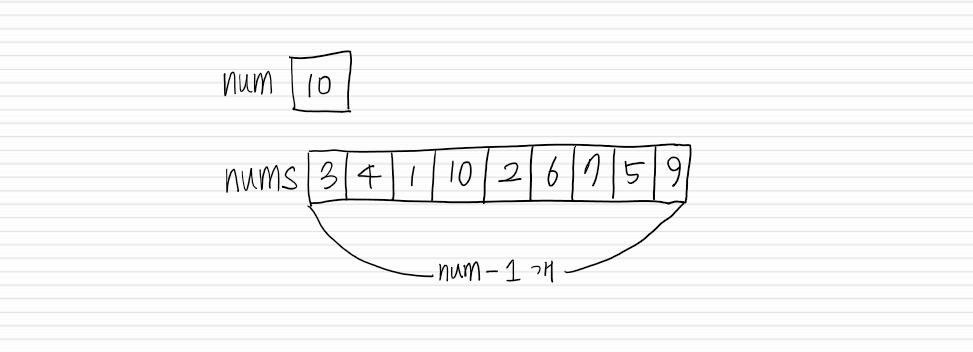 num 10
nums 3 4 1 10 2 6 7 5 9
num-1 개